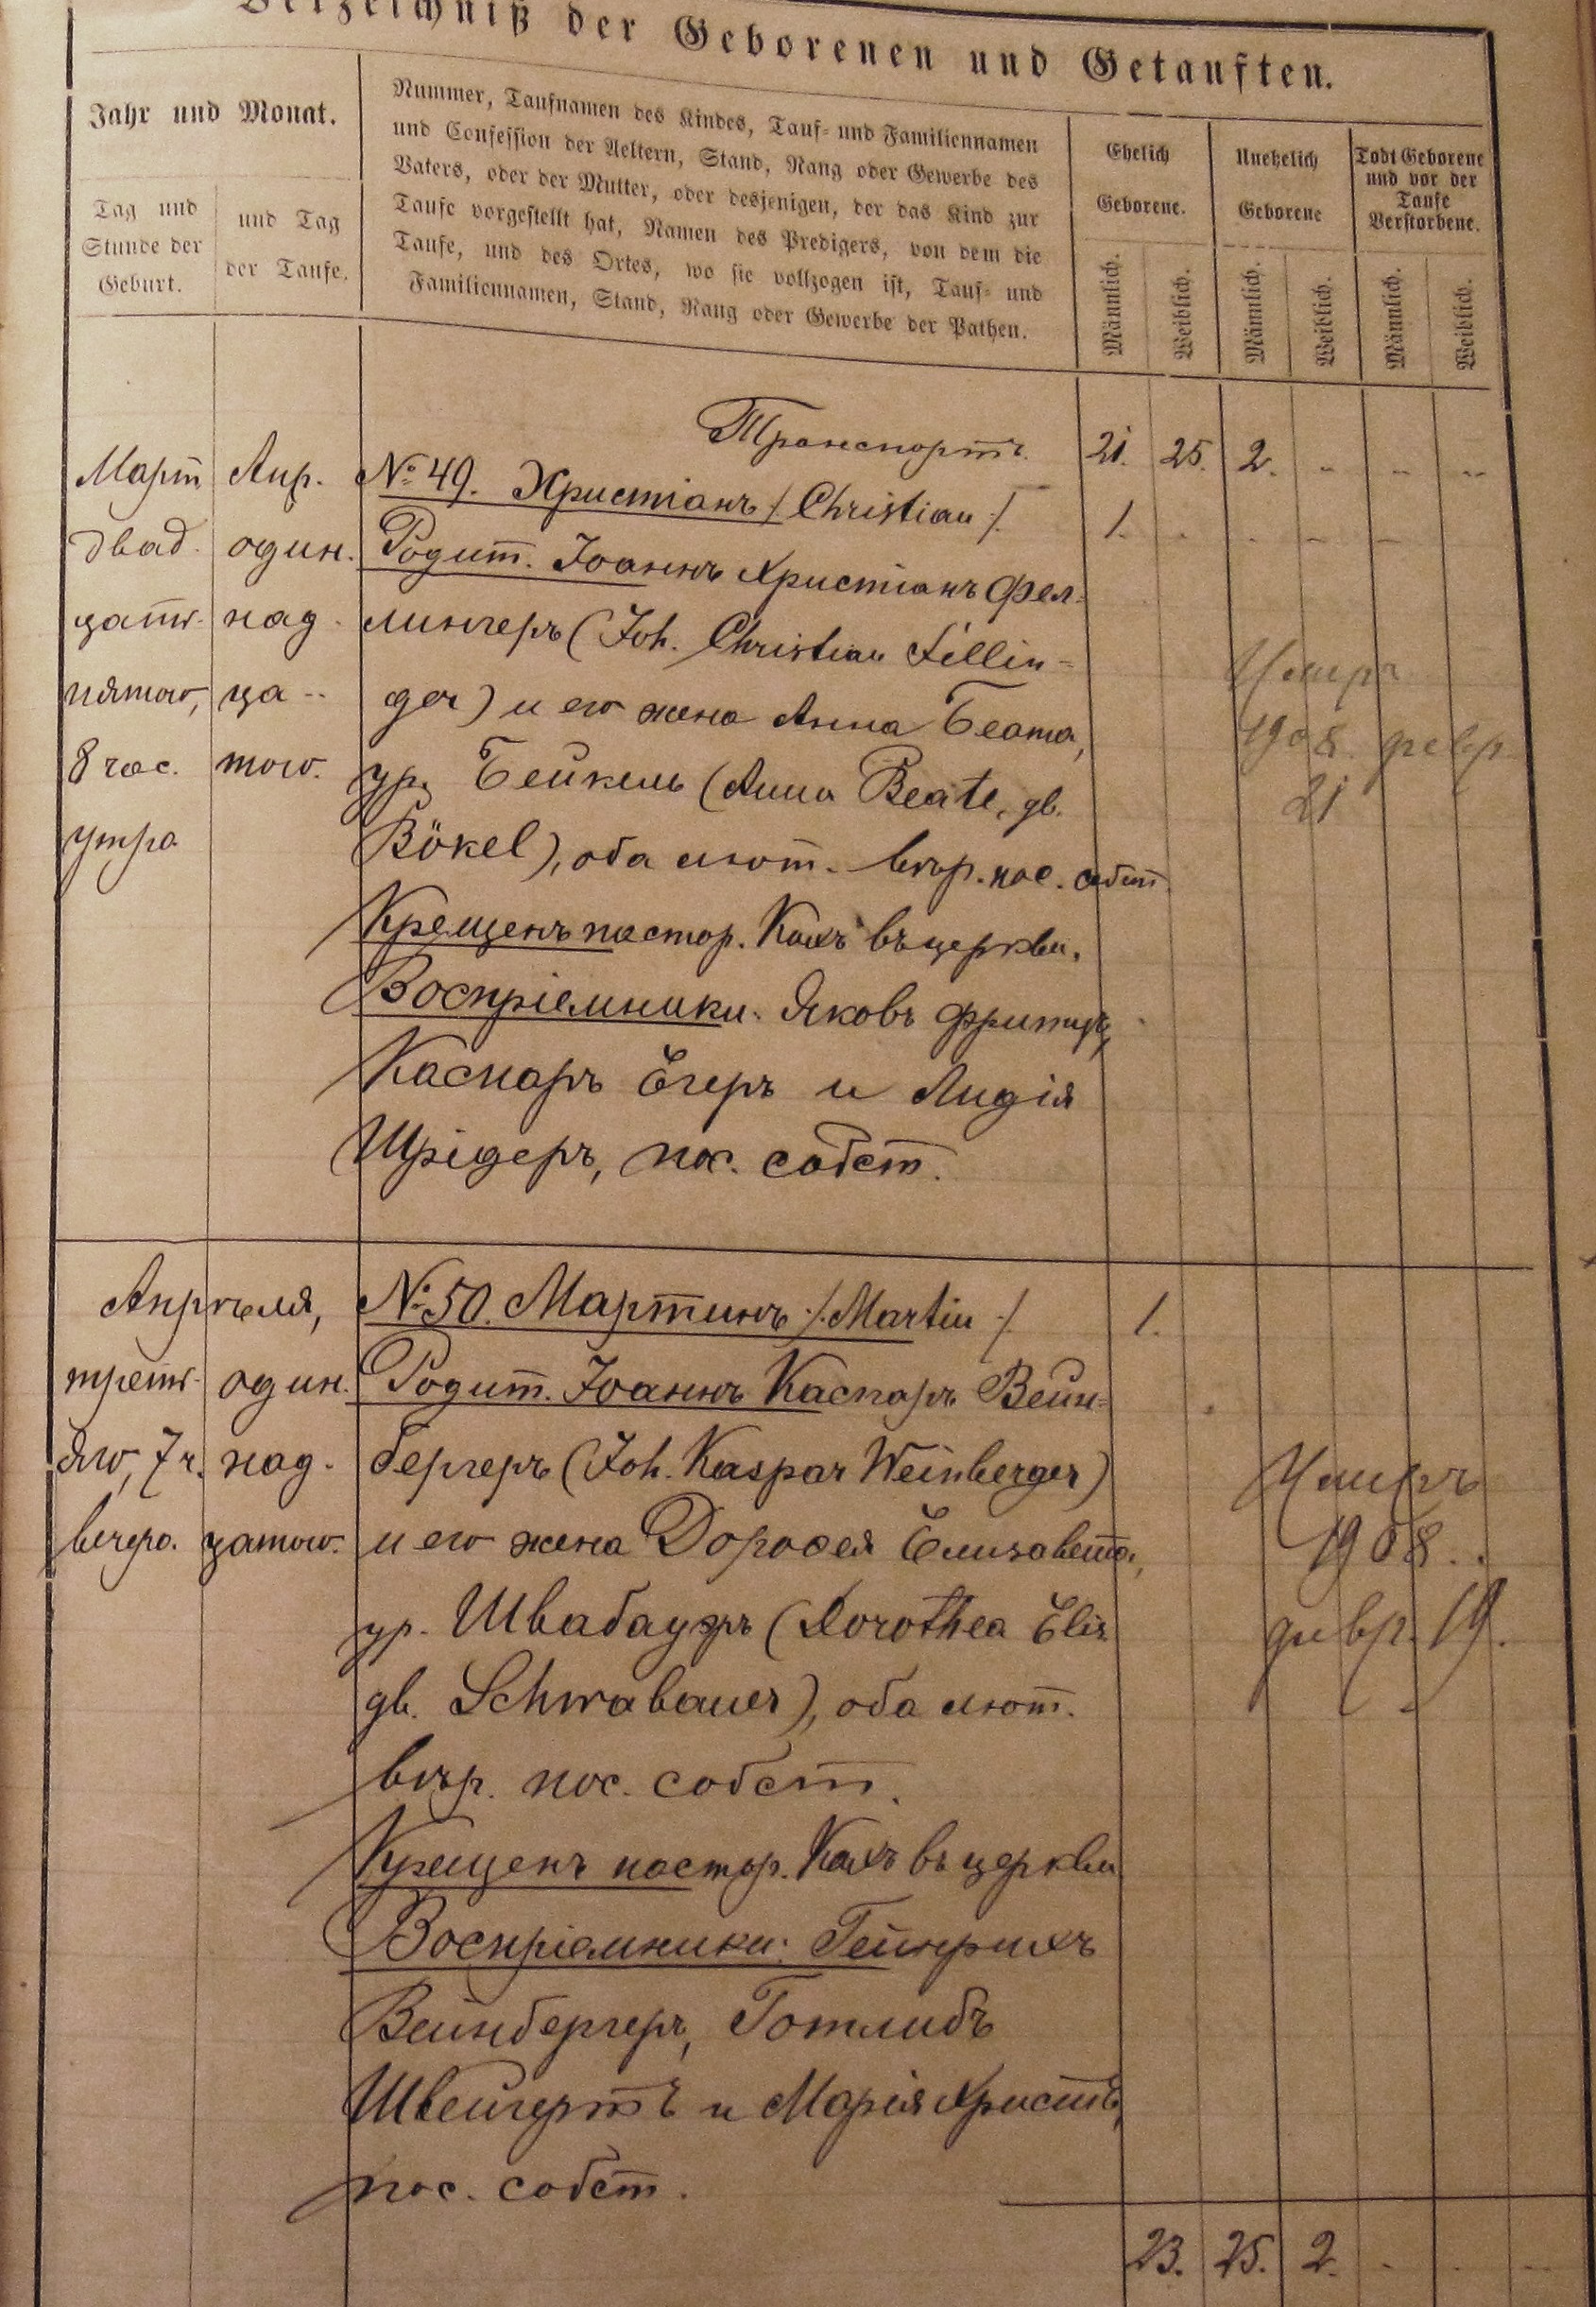 Verzeichniß der Geborenen und Getauften.
Jahr und Monat.
Tag und
Stunde der
Geburt.
und Tag
der Taufe.
Nummer, Taufnamen des Kindes, Tauf- und Familiennamen
und Confession der Aeltern, Stand, Rang oder Gewerbe des
Vaters, oder der Mutter, oder desjenigen, der das Kind zur
Taufe vorgestellt hat, Namen des Predigers, von dem die
Taufe, und des Ortes, wo sie vollzogen ist, Tauf- und
Familiennamen, Stand, Rang oder Gewerbe der Pathen.
Ehelich
Geborene.
Unehelich
Geborene
Todt Geborene
und vor der
Taufe
Verstorbene.
Männlich.
Weiblich.
Männlich.
Weiblich.
Männlich.
Weiblich.
Транспортъ. 21. 25. 2. - - -
Март Апр. № 49. Христіанъ /. Christian ./. 1. - - - -
двад- один- Родит. Іоаннъ Христіанъ Фел-
цать- над- лингеръ (Joh. Christian Fellin-
пятаго, ца-- ger) и его жена Анна Беата,
8 час. таго. ур. Бейкель (Anna Beate, gb.
утра Bökel), оба лют. вѣр. пос. собст.
Крещенъ пастор. Кахъ въ церкви.
Воспріемники: Яковъ Фритцъ,
Каспаръ Егеръ и Лидія
Шрідеръ, пос. собст.
Умиръ
1908 февр.
21
Апрѣля, № 50. Мартинъ /. Martin ./. 1.
треть- один- Родит. Іоаннъ Каспаръ Вейн-
яго, 7 ч. над- бергеръ (Joh. Kaspar Weinberger)
вечера. цатаго. и его жена Доротея Елизавета,
ур. Швабауэръ (Dorothea Elis.
gb. Schwabauer), оба лют.
вѣр. пос. собст.
Крещенъ пастор. Кахъ въ церкви
Воспріемники: Гейнрихъ
Вейнбергеръ, Готлибъ
Швейгертъ и Марія Христъ,
пос. собст.
Умиръ
1908.
февр. 19.
23. 25. 2. - - -